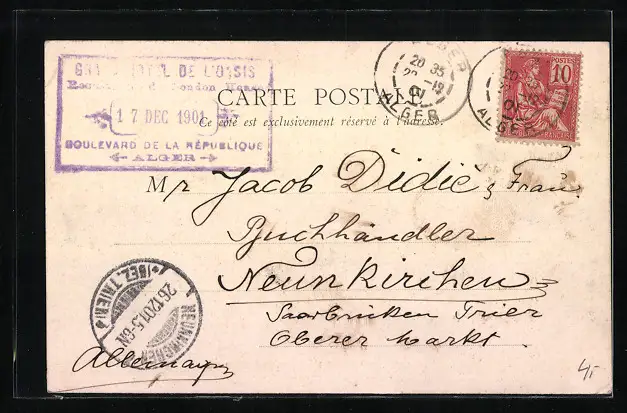 GRAND HOTEL DE L'OASIS
London House
17 DEC 1901
BOULEVARD DE LA RÉPUBLIQUE
ALGER
CARTE POSTALE
Ce côté est exclusivement réservé à l'adresse.
ALGER
20 35
01
ALGER
POSTES
10
Mr Jacob Didié & Frau
Buchhändler
Neunkirchen
Saarbrücken Trier
Oberer Markt.
Allemagne
NEUNKIRCHEN
26.12.01.5-6N
(BEZ. TRIER)
4,-